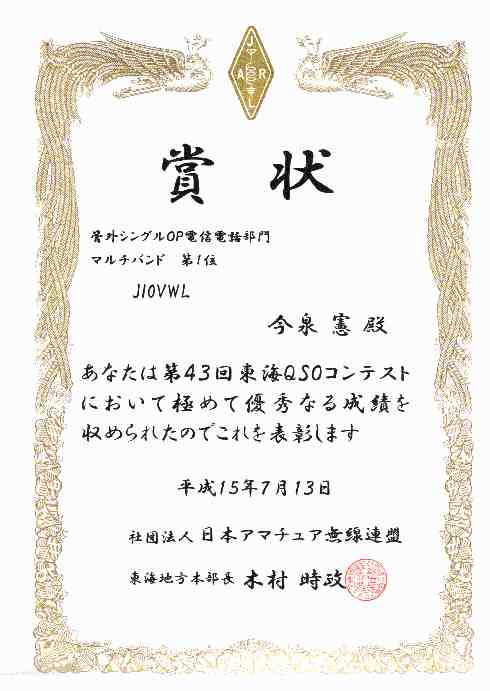 JARL
賞状
管外シングルOP電信電話部門
マルチバンド 第1位
JI0VWL
今泉 憲 殿
あなたは第43回東海QSOコンテスト
において極めて優秀なる成績を
収められたのでこれを表彰します
平成15年7月13日
社団法人 日本アマチュア無線連盟
東海地方本部長 木村 時政